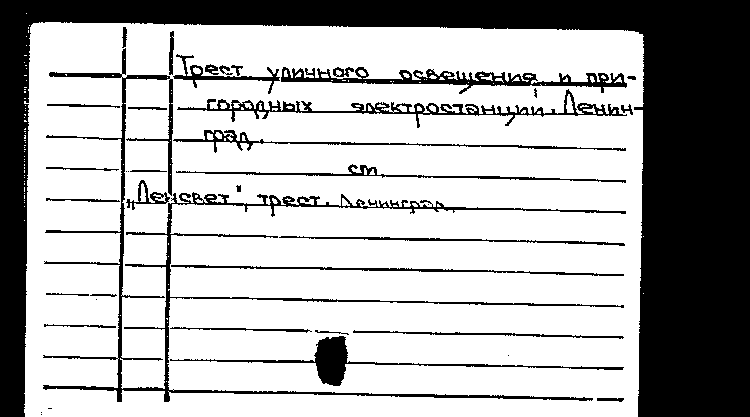 Трест уличного освещения и при-
городных электростанций. Ленин-
град.
см.
„Ленсвет", трест. Ленинград.